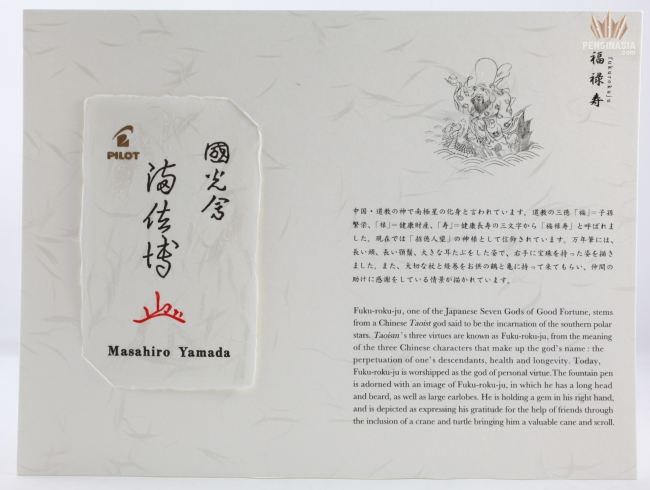 PILOT
國光會
満佐博
Masahiro Yamada
PENSINASIA
.COM
福禄寿
fukurokuju
中国・道教の神で南極星の化身と言われています。道教の三徳「福」=子孫
繁栄、「禄」=健康財産、「寿」=健康長寿の三文字から「福禄寿」と呼ばれ
ました。現在では「招徳人望」の神様として信仰されています。万年筆には、
長い頭、長い顎鬚、大きな耳たぶをした姿で、右手に宝珠を持った姿を描き
ました。また、大切な杖と経巻をお供の鶴と亀に持って来てもらい、仲間の
助けに感謝をしている情景が描かれています。
Fuku-roku-ju, one of the Japanese Seven Gods of Good Fortune, stems
from a Chinese Taoist god said to be the incarnation of the southern polar
stars. Taoism's three virtues are known as Fuku-roku-ju, from the meaning
of the three Chinese characters that make up the god's name : the
perpetuation of one's descendants, health and longevity. Today,
Fuku-roku-ju is worshipped as the god of personal virtue. The fountain pen
is adorned with an image of Fuku-roku-ju, in which he has a long head
and beard, as well as large earlobes. He is holding a gem in his right hand,
and is depicted as expressing his gratitude for the help of friends through
the inclusion of a crane and turtle bringing him a valuable cane and scroll.